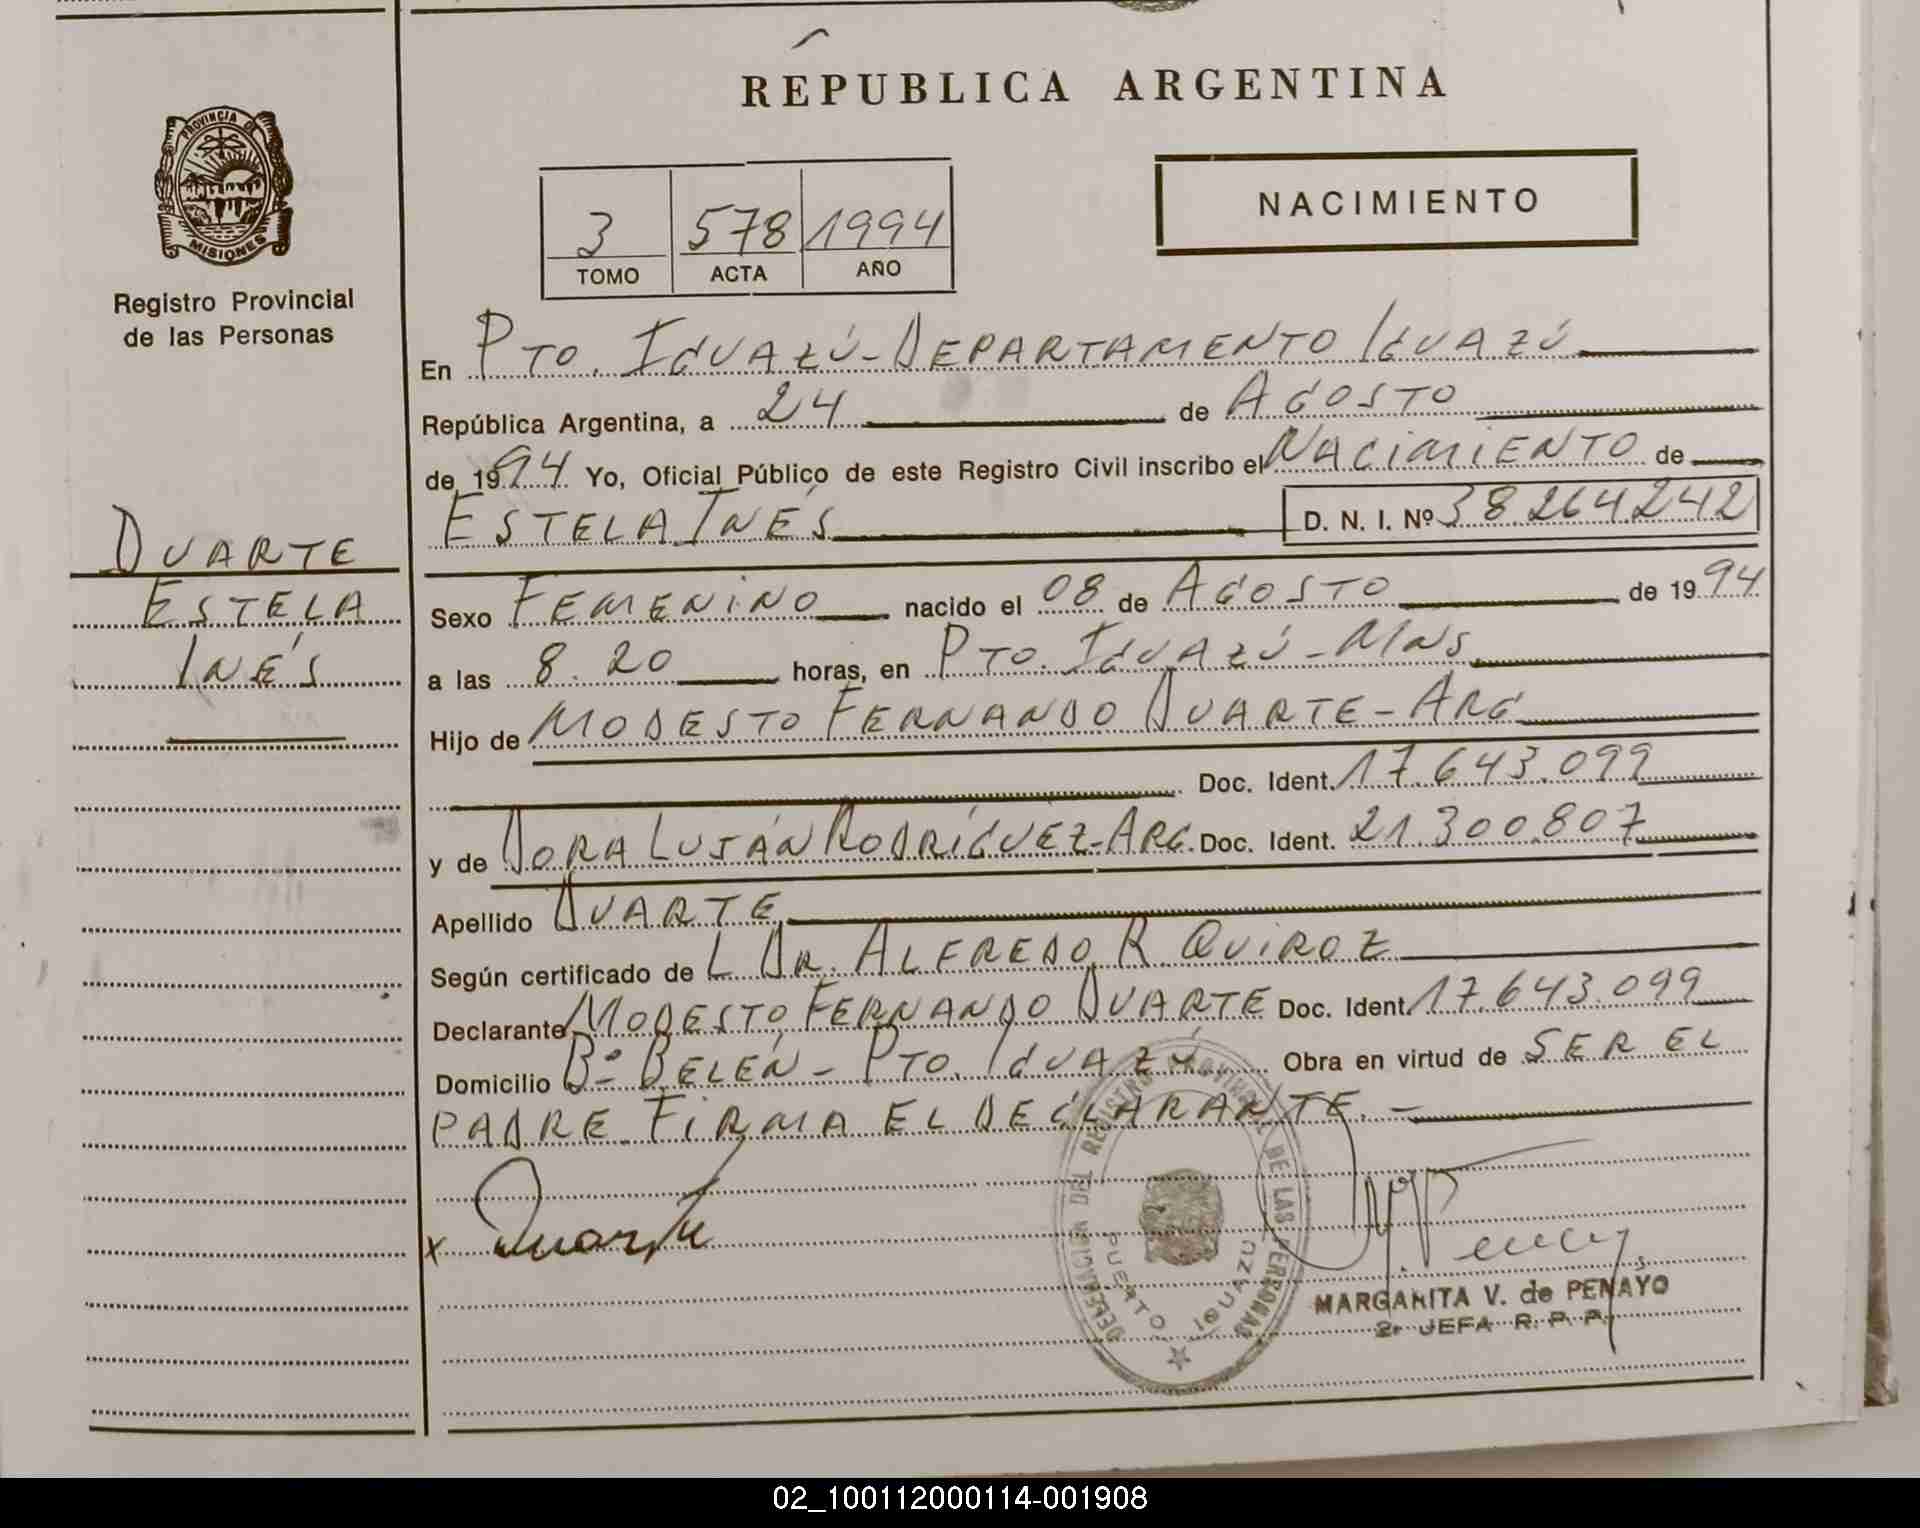 REPUBLICA ARGENTINA
PROVINCIA DE
MISIONES
Registro Provincial
de las Personas
3 578 1994
TOMO ACTA AÑO
NACIMIENTO
En PTO. IGUAZÚ - DEPARTAMENTO IGUAZÚ
República Argentina, a 24 de AGOSTO
de 1994 Yo, Oficial Público de este Registro Civil inscribo el NACIMIENTO de
ESTELA INÉS D. N. I. Nº 38.264.242
DUARTE
ESTELA
INÉS
Sexo FEMENINO nacido el 08 de AGOSTO de 1994
a las 8.20 horas, en PTO. IGUAZÚ - MNS
Hijo de MODESTO FERNANDO DUARTE - ARG
Doc. Ident. 17.643.099
y de DORA LUJÁN RODRÍGUEZ - ARG. Doc. Ident. 21.300.807
Apellido DUARTE
Según certificado de L DR. ALFREDO R. QUIROZ
Declarante MODESTO FERNANDO DUARTE Doc. Ident. 17.643.099
Domicilio Bº BELÉN - PTO. IGUAZÚ Obra en virtud de SER EL
PADRE. FIRMA EL DECLARANTE. -
x Duarte
DELEGACION DEL REGISTRO PROVINCIAL DE LAS PERSONAS
PUERTO IGUAZU
MARGARITA V. de PENAYO
JEFA R. P. P.
02_100112000114-001908